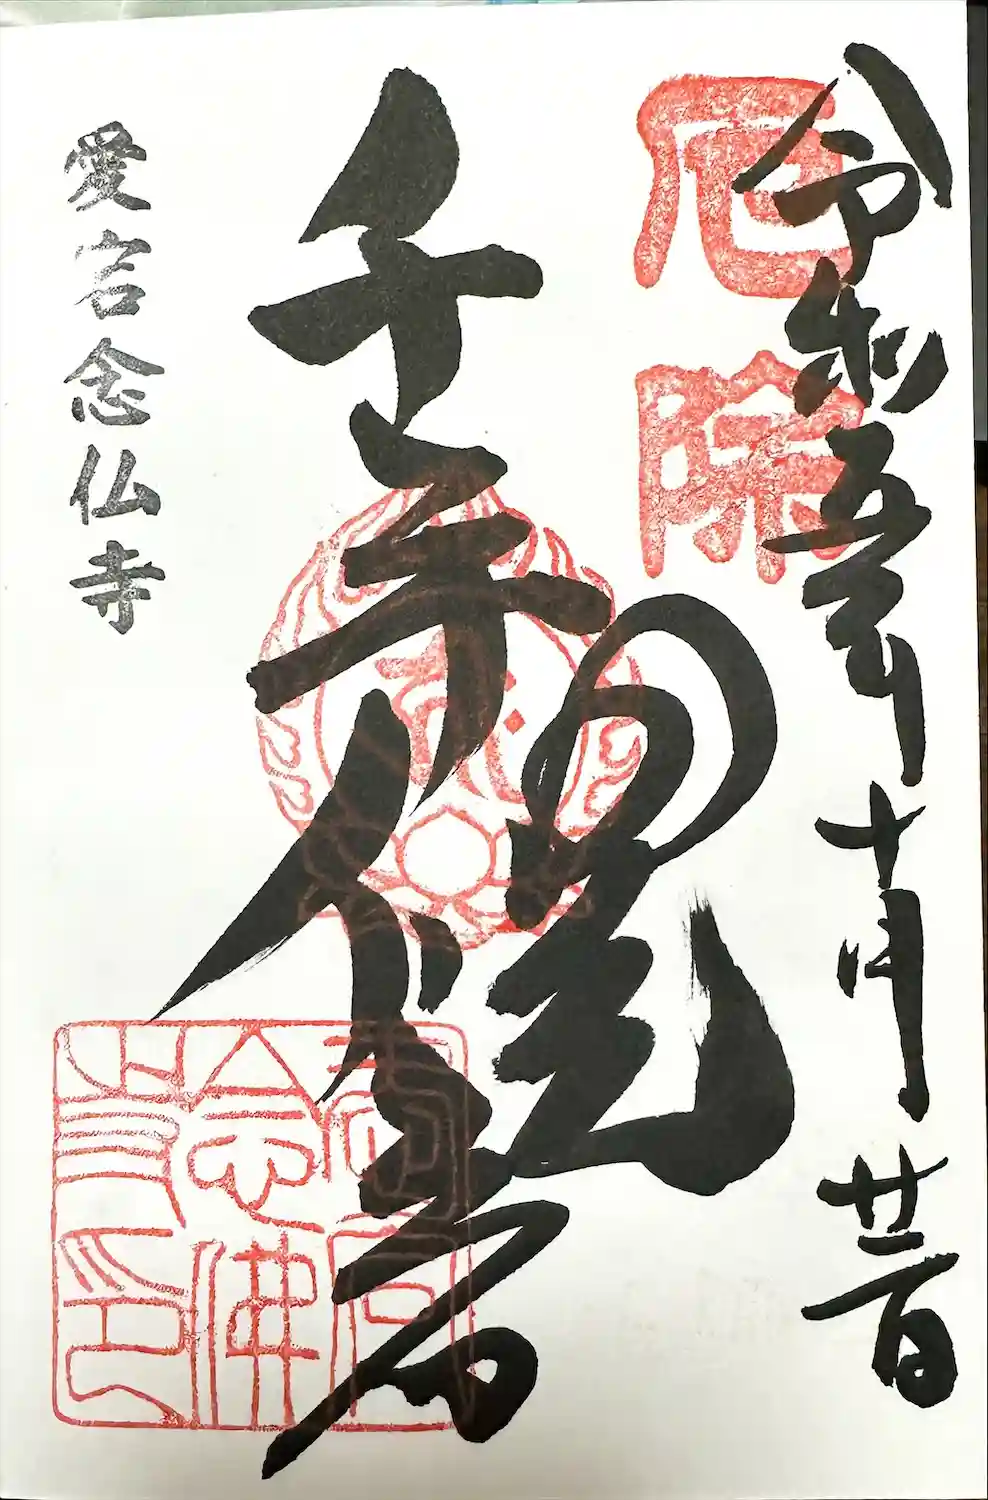 令和五年十月廿一日
厄除
千手観音
愛宕念仏寺
念佛
寺印